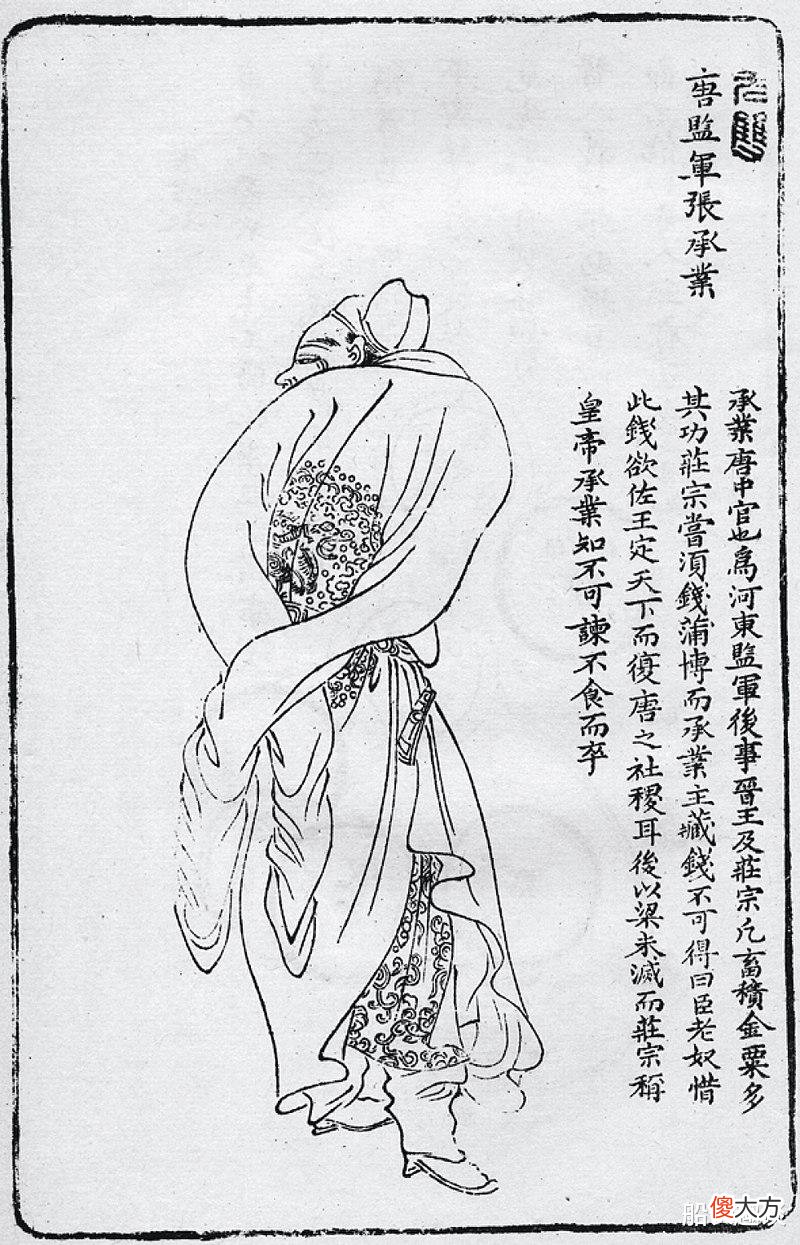 唐監軍張承業
承業唐中官也爲河東監軍後事晉王及莊宗凡畜積金粟多
其功莊宗嘗須錢蒲博而承業主藏錢不可得曰臣老奴惜
此錢欲佐王定天下而復唐之社稷耳後以梁未滅而莊宗稱
皇帝承業知不可諫不食而卒
傻大方